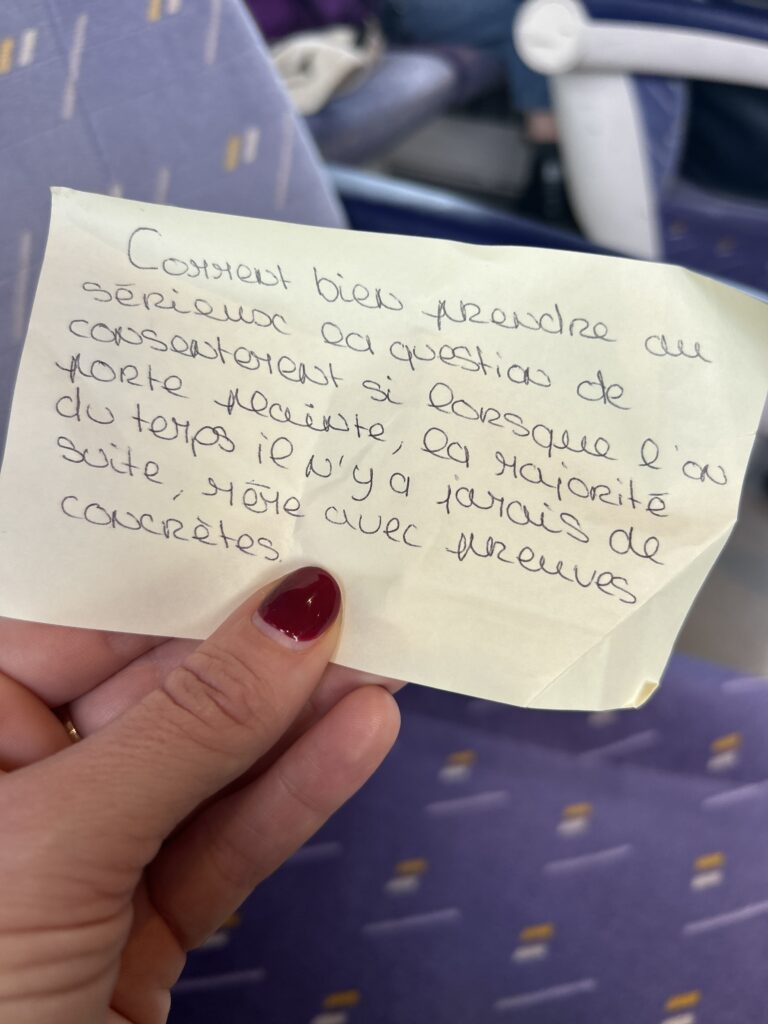 Comment bien prendre au
sérieux la question de
consentement si lorsque l'on
porte plainte, la majorité
du temps il n'y a jamais de
suite, même avec preuves
concrètes.